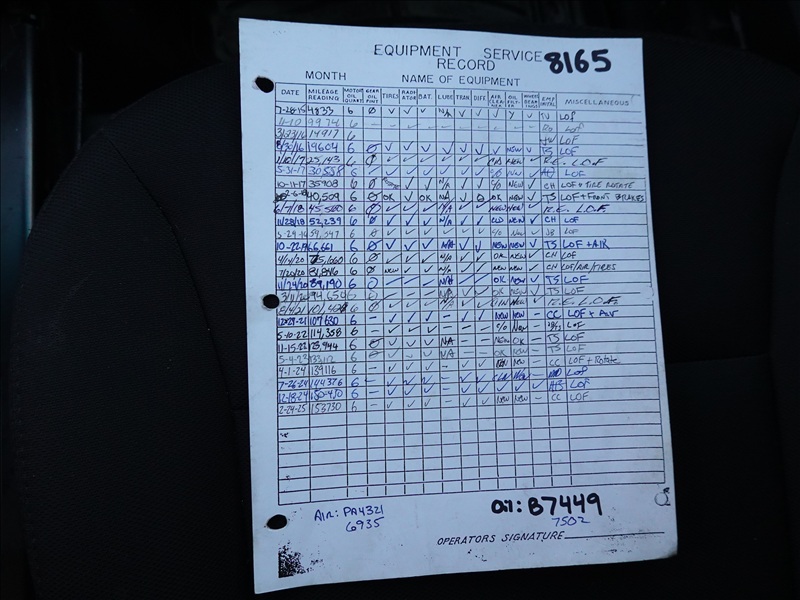 EQUIPMENT SERVICE RECORD 8165
MONTH NAME OF EQUIPMENT
DATE MILEAGE READING MOTOR OIL QUARTS GEAR OIL PINT TIRES RADIATOR BAT. LUBE TRAN. DIFF. AIR CLEANER OIL FILTER WHEEL BEARINGS EMP INITIAL MISCELLANEOUS
7-28-15 4833 6 Ø ✓ ✓ ✓ N/A ✓ ✓ ✓ Y ✓ LOF
9974 6 LOF
3/23/16 14917 6 LOF
8/30/16 19604 6 Ø ✓ ✓ ✓ ✓ ✓ ✓ ✓ NEW ✓ TS LOF
1/10/17 25,143 6 NEW ✓ R.E. L.O.F.
5-31-17 30558 6 LOF
10-11-17 35908 6 Ø ✓ ✓ N/A ✓ ✓ S/O NEW ✓ CH LOF + TIRE ROTATE
40,509 6 Ø OK ✓ OK NA ✓ OK NEW ✓ TS LOF + FRONT BRAKES
6/7/18 45,560 6 R.E. L.O.F.
11/28/18 52,239 6 Ø ✓ ✓ ✓ N/A ✓ ✓ CLD NEW ✓ CH LOF
5-29-19 59,547 6 LOF
10-22-19 66,661 6 Ø ✓ ✓ ✓ N/A ✓ ✓ NEW NEW ✓ TS LOF + AIR
4/14/20 75,660 6 Ø ✓ ✓ ✓ N/A ✓ ✓ OK NEW ✓ CH LOF
7/20/20 81,846 6 Ø NEW ✓ ✓ N/A ✓ ✓ NEW NEW ✓ CH LOF/AIR/TIRES
11/24/20 89,190 6 N/A OK NEW ✓ TS LOF
94,650 6 TS LOF
8/4/21 6 R.E. L.O.F.
12-29-21 107630 6 – ✓ ✓ ✓ – ✓ ✓ NEW NEW – CC LOF + Air
5-10-22 114,358 6 – S/O New – LOF
11-15-22 123,944 6 NA NEW OK – TS LOF
5-4-23 6 NA OK NEW – TS LOF
4-1-24 139116 6 – ✓ ✓ ✓ – ✓ ✓ NEW NEW – CC LOF + Rotate
7-26-24 144376 6 LOF
12-18-24 150,410 6 LOF
2-24-25 153730 6 – ✓ ✓ ✓ – ✓ ✓ NEW NEW – CC LOF
AIR: PA4321 Oil: B7449
6935 7502
OPERATORS SIGNATURE